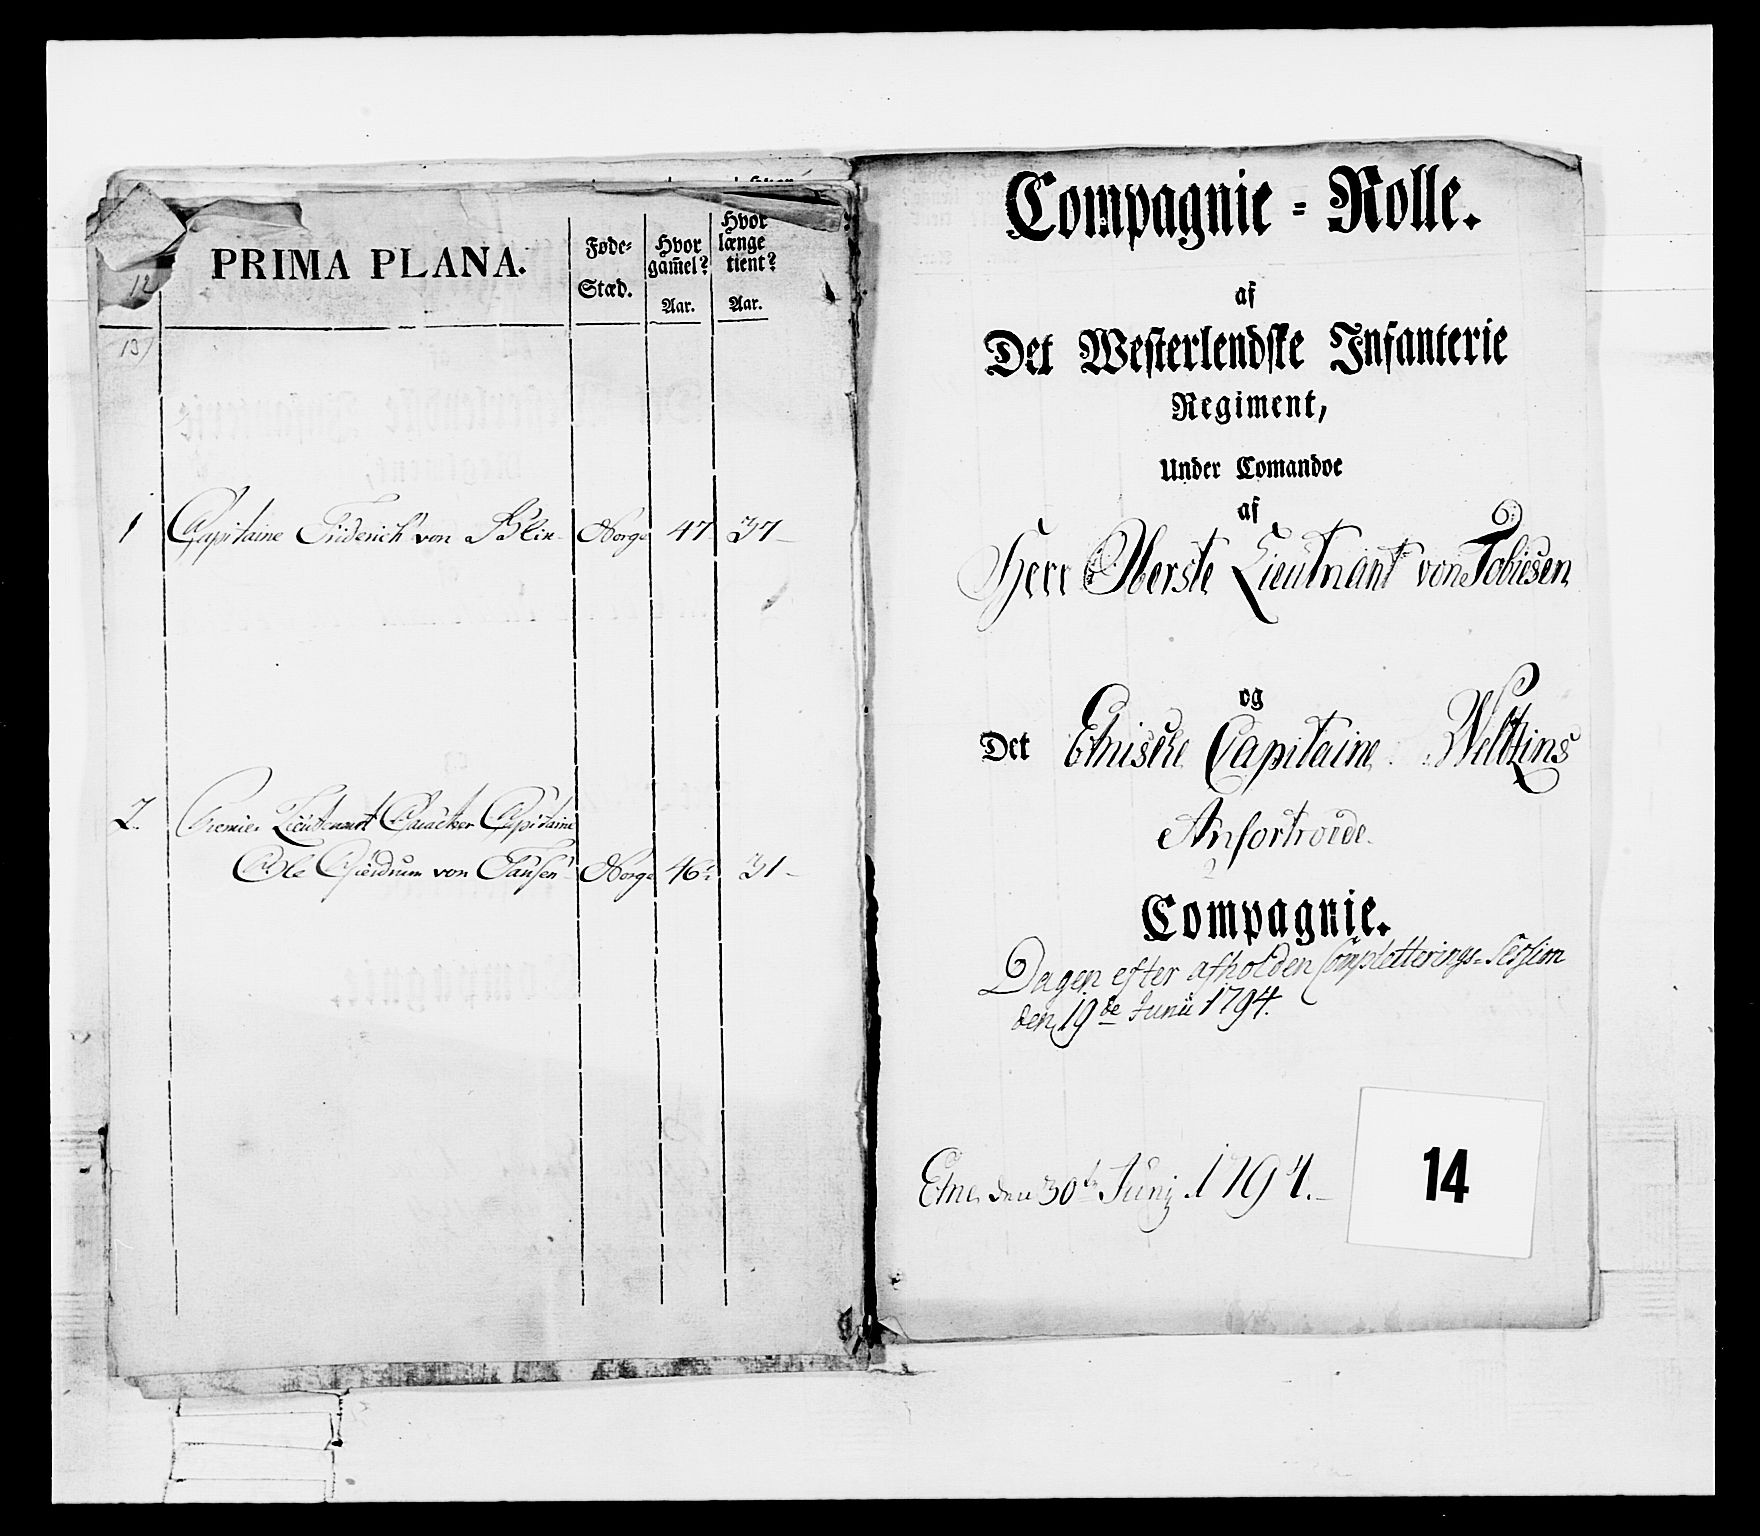 12
13
PRIMA PLANA.
Føde-
Stæd.
Hvor
gam̃el?
Aar.
Hvor
længe
tient?
Aar.
1 Capitaine Friderich von Norge 47 37
2. Premier Lieutenant Caracteer Capitaine
Ole von Norge 46 31
Compagnie = Rolle.
af
Det Westerlendske Infanterie
Regiment,
Under Comandoe
af
Herr Oberste Lieutnant von Tobiesen
og
Det Etnische Capitaine Weltzins
Anfortroede
Compagnie.
Dagen efter afholden Completterings-Session
den 19de Junii 1794.
Etne den 30te Junij 1794.
14